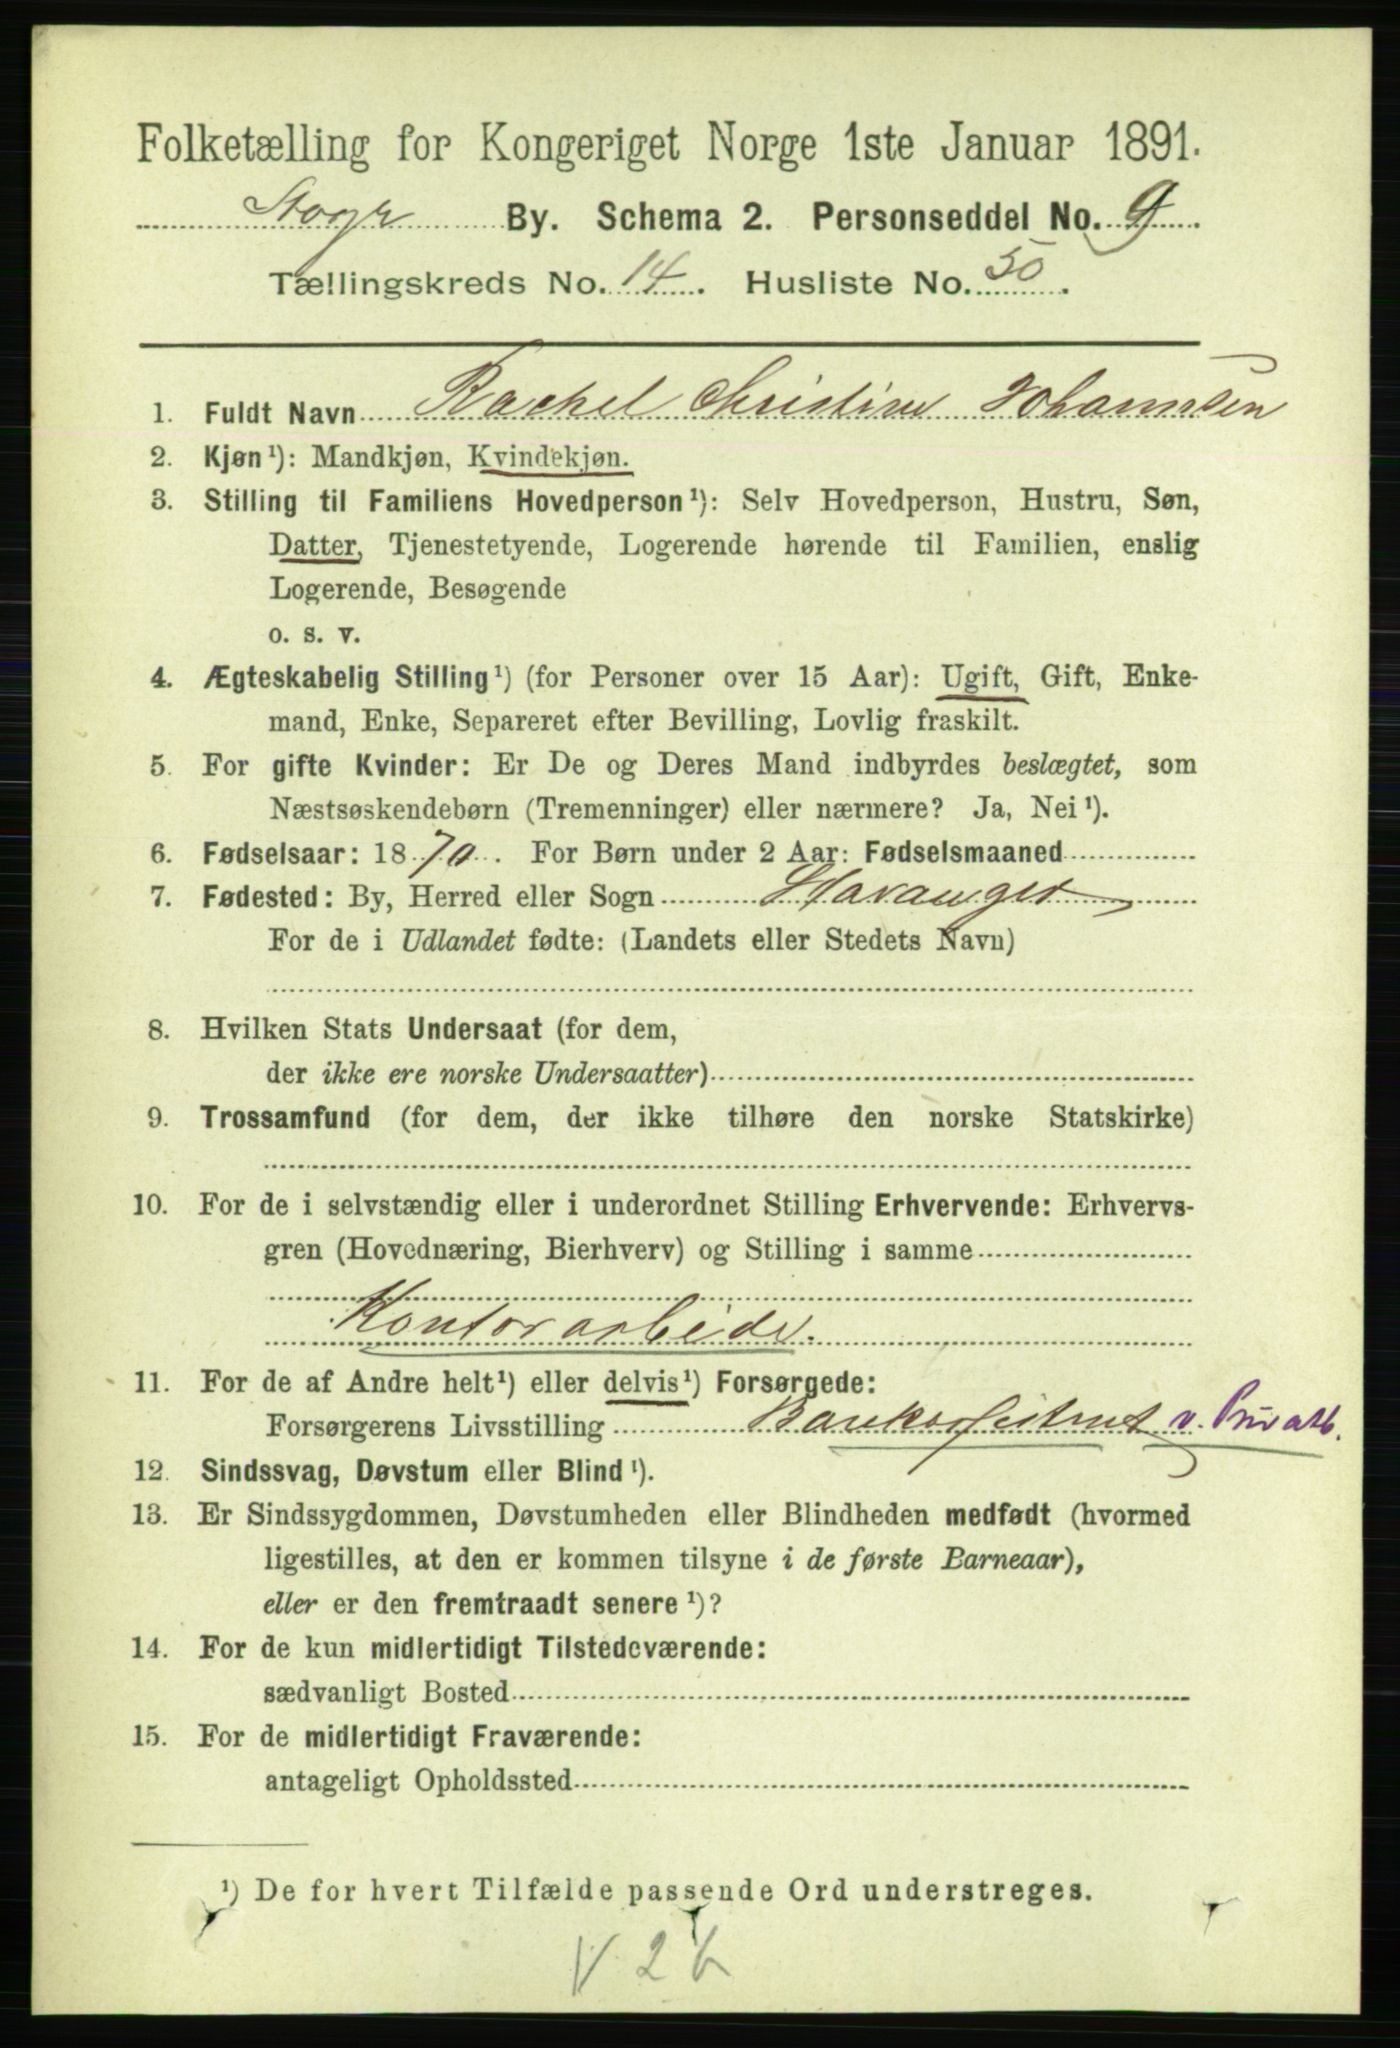 Folketælling for Kongeriget Norge 1ste Januar 1891.
Stvgr By. Schema 2. Personseddel No. 9
Tællingskreds No. 14. Husliste No. 50.
1. Fuldt Navn Rachel Christine Johannsen
2. Kjøn ¹): Mandkjøn, Kvindekjøn.
3. Stilling til Familiens Hovedperson ¹): Selv Hovedperson, Hustru, Søn,
Datter, Tjenestetyende, Logerende hørende til Familien, enslig
Logerende, Besøgende
o. s. v.
4. Ægteskabelig Stilling ¹) (for Personer over 15 Aar): Ugift, Gift, Enke-
mand, Enke, Separeret efter Bevilling, Lovlig fraskilt.
5. For gifte Kvinder: Er De og Deres Mand indbyrdes beslægtet, som
Næstsøskendebørn (Tremenninger) eller nærmere? Ja, Nei ¹).
6. Fødselsaar: 1870. For Børn under 2 Aar: Fødselsmaaned
7. Fødested: By, Herred eller Sogn Stavanger
For de i Udlandet fødte: (Landets eller Stedets Navn)
8. Hvilken Stats Undersaat (for dem,
der ikke ere norske Undersaatter)
9. Trossamfund (for dem, der ikke tilhøre den norske Statskirke)
10. For de i selvstændig eller i underordnet Stilling Erhvervende: Erhvervs-
gren (Hovednæring, Bierhverv) og Stilling i samme
Kontorarbeide.
11. For de af Andre helt ¹) eller delvis ¹) Forsørgede:
Forsørgerens Livsstilling v. Privatb.
12. Sindssvag, Døvstum eller Blind ¹).
13. Er Sindssygdommen, Døvstumheden eller Blindheden medfødt (hvormed
ligestilles, at den er kommen tilsyne i de første Barneaar),
eller er den fremtraadt senere ¹)?
14. For de kun midlertidigt Tilstedeværende:
sædvanligt Bosted
15. For de midlertidigt Fraværende:
antageligt Opholdssted
¹) De for hvert Tilfælde passende Ord understreges.
V 2 b